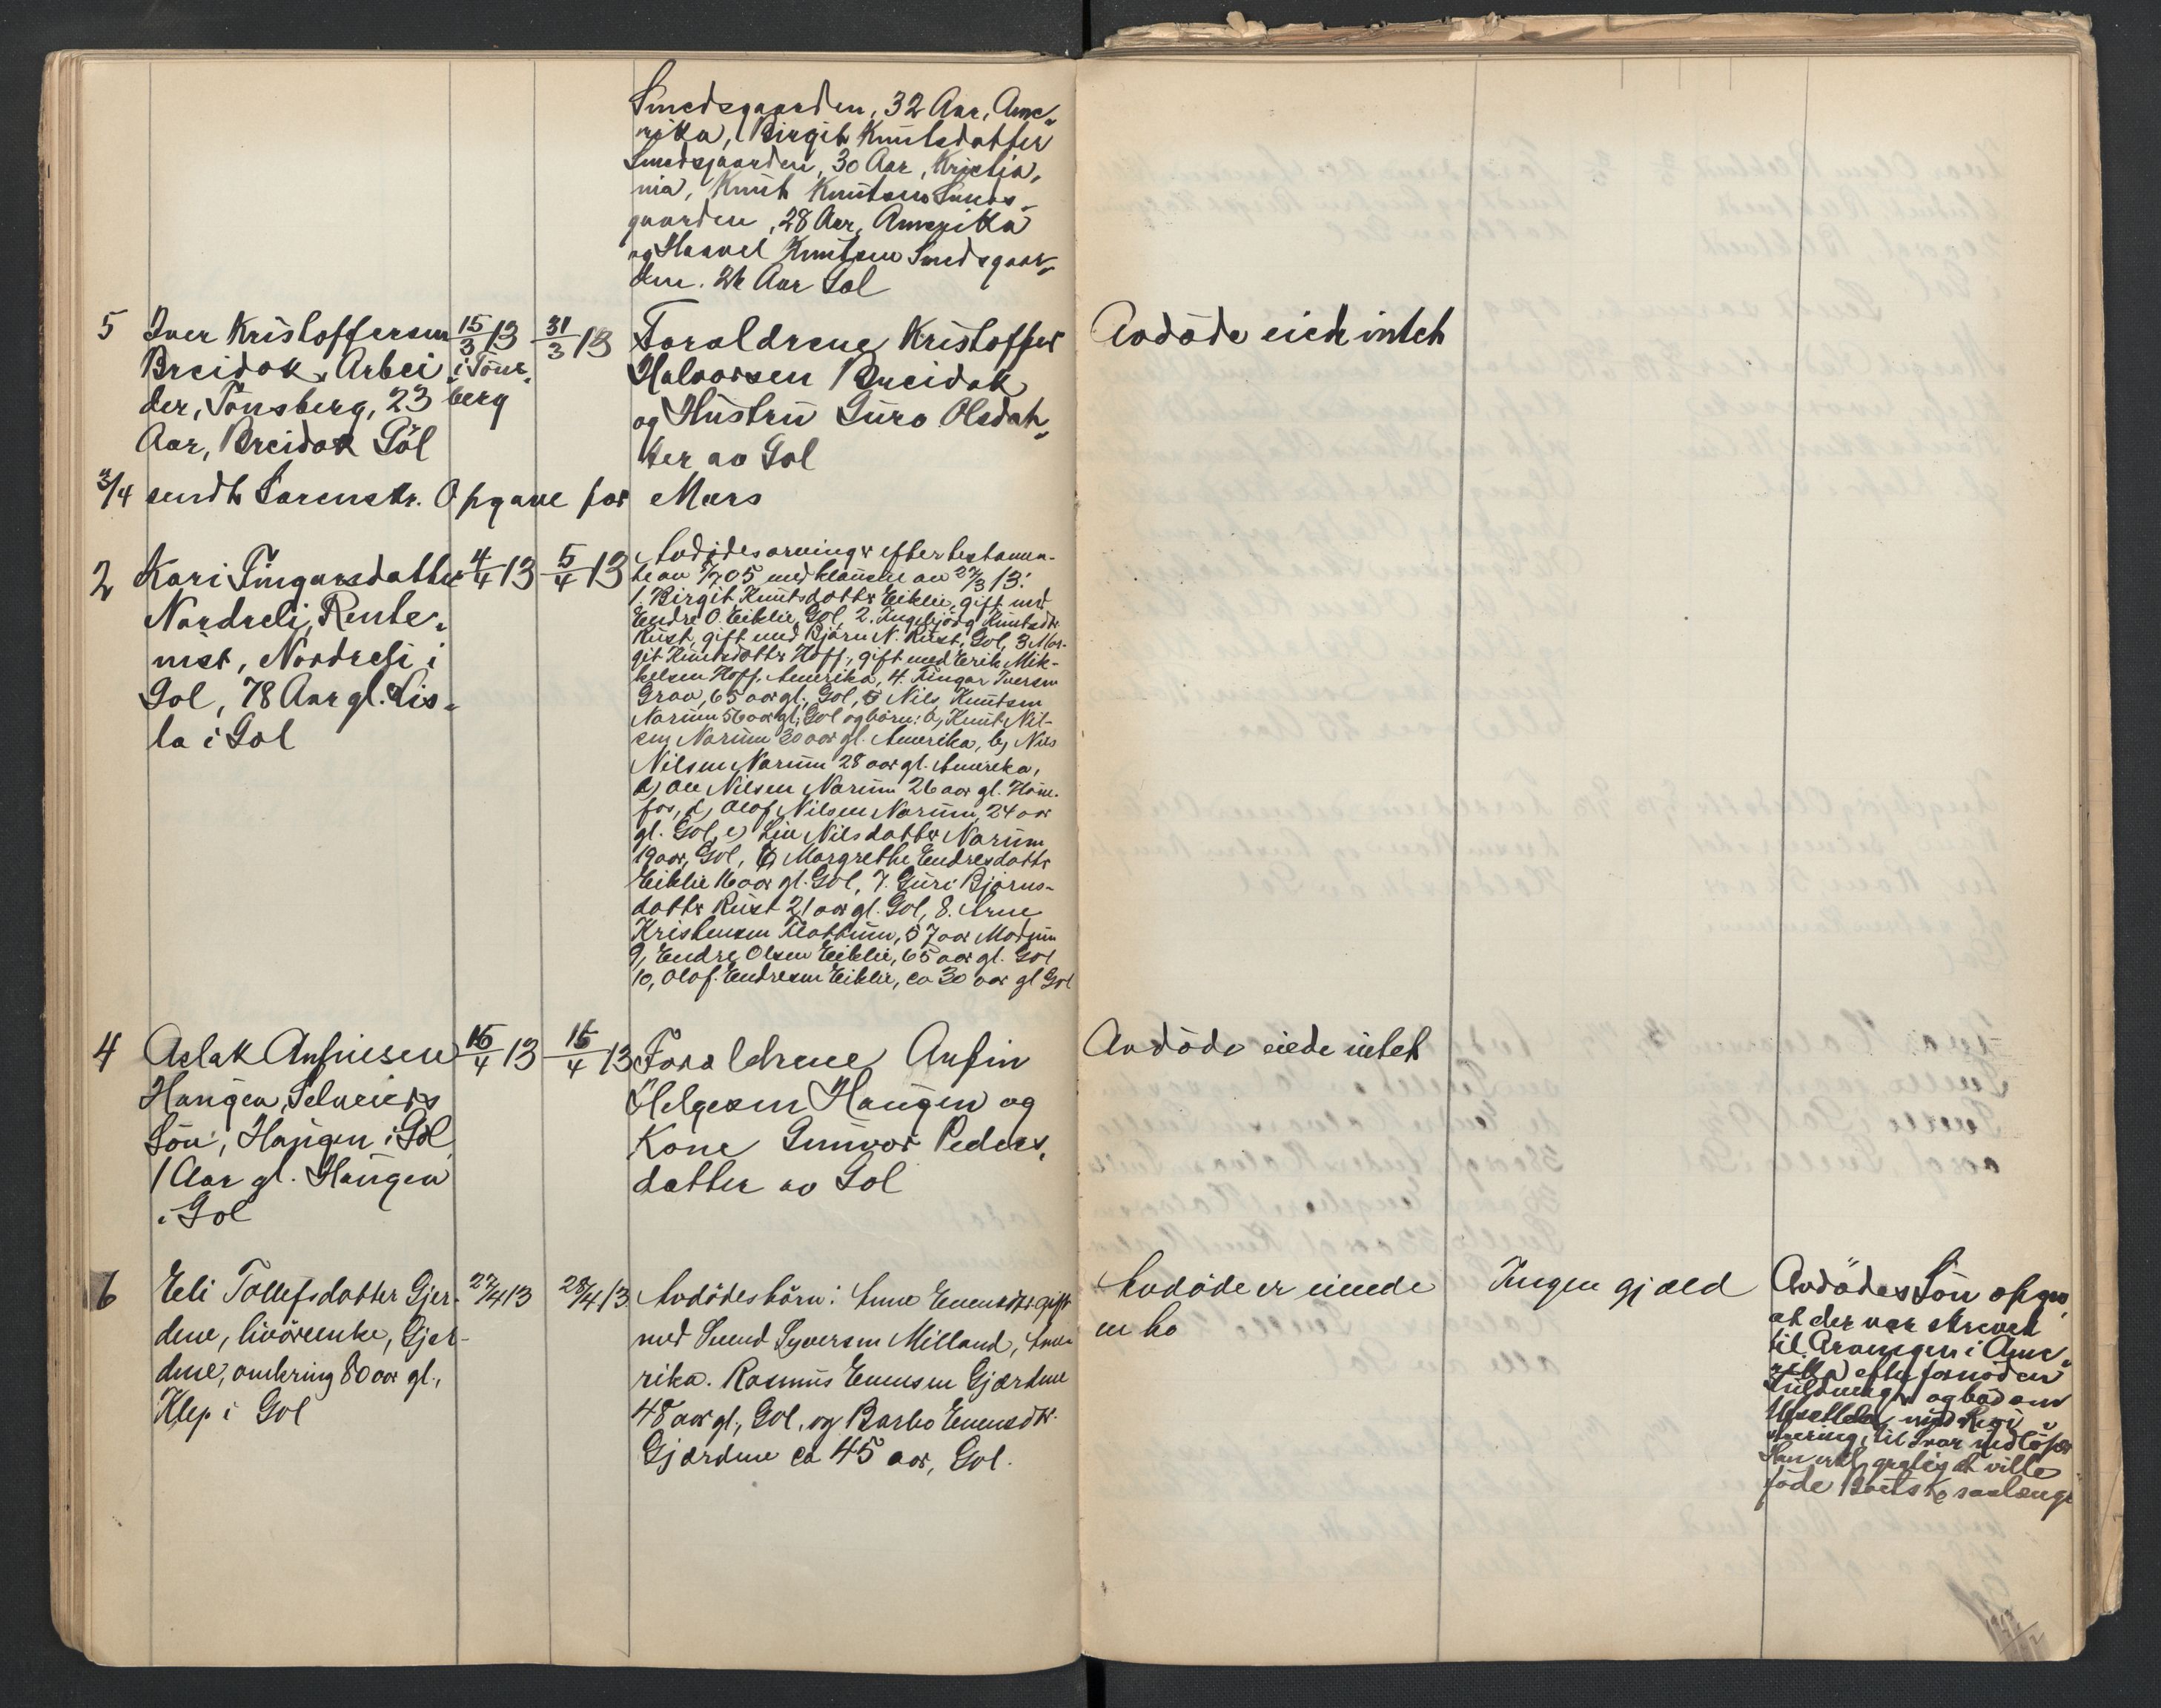 Smedsgaarden, 32 Aar, Ame-
rika, Birgit Knutsdatter
Smedsgaarden, 30 Aar, Kristia-
nia, Knut Knutsen Smeds-
gaarden, 28 Aar, Amerika
og Haavel Knutsen Smedsgaar-
den. 26 Aar Gol
5 Iver Kristoffersen
Breidok, Arbei-
der, Tönsberg, 23
Aar, Breidok Gol
15/3 13
i Töns-
berg
31/3 13
Foraldrene Kristoffer
Halvorsen Breidok
og Hustru Guro Olsdat-
ter av Gol
Avdöde eiet intet
3/4 sendt Sorenskr. Opgave for Mars
2 Kari Tingarsdatter
Nordreli, Rente-
nist, Nordreli i
Gol, 78 Aar gl. Lis-
la i Gol
4/4 13
5/4 13
Avdödes arvinger efter testamen-
te av 05 med klausul av 27/3 13:
1. Birgit Knutsdatter Eiklie, gift med
Endre O. Eiklie, Gol, 2. Ingebjörg Knutsdtr.
Rust, gift med Björn N. Rust, Gol, 3 Mar-
git Knutsdatter Hoff, gift med Erik Mik-
kelsen Hoff, Amerika, 4. Tingar Iversen
Grøv, 65 aar gl., Gol, 5 Nils Knutsen
Narum 56 aar gl., Gol og börn: a, Knut Nil-
sen Narum 30 aar gl. Amerika, b, Nils
Nilsen Narum 28 aar gl. Amerika,
c, Ole Nilsen Narum 26 aar gl. Höne-
fos, d, Olaf Nilsen Narum, 24 aar
gl. Gol, e) Liv Nilsdatter Narum
19 aar, Gol, 6, Margrethe Endresdatter
Eiklie 16 aar gl. Gol, 7. Guri Björns-
datter Rust 21 aar gl. Gol, 8. Arne
Kristensen Flathum, 57 aar Modum
9, Endre Olsen Eiklie, 65 aar gl. Gol
10, Olaf Endresen Eiklie, ca 30 aar gl Gol
4 Aslak Anfinsen
Haugen, Selveiers
Sön, Haugen i Gol
1 Aar gl. Haugen
i Gol
15/4 13
16/4 13
Foraldrene Anfin
Helgesen Haugen og
Kone Gunvor Peders-
datter av Gol
Avdöde eiede intet
6 Eli Tollefsdatter Gjer-
dene, livörenke, Gjer-
dene, omkring 80 aar gl.,
Klep i Gol
27/4 13
28/4 13
Avdödes börn: Anne Evensdtr. gift
med Svend Syversen Milland, Ame-
rika. Rasmus Evensen Gjærdene
48 aar gl., Gol, og Barbo Evensdtr.
Gjærdene ca 45 aar, Gol.
Avdöde er eiede
en ko
Ingen gjæld
Avdödes Sön opgav
at der var skrevet
til Arvingen i Ame-
rika efter fornöden
og bad om
med Regi-
strering, til Svar indlöper
Han at ville
föde Boets Ko saalænge